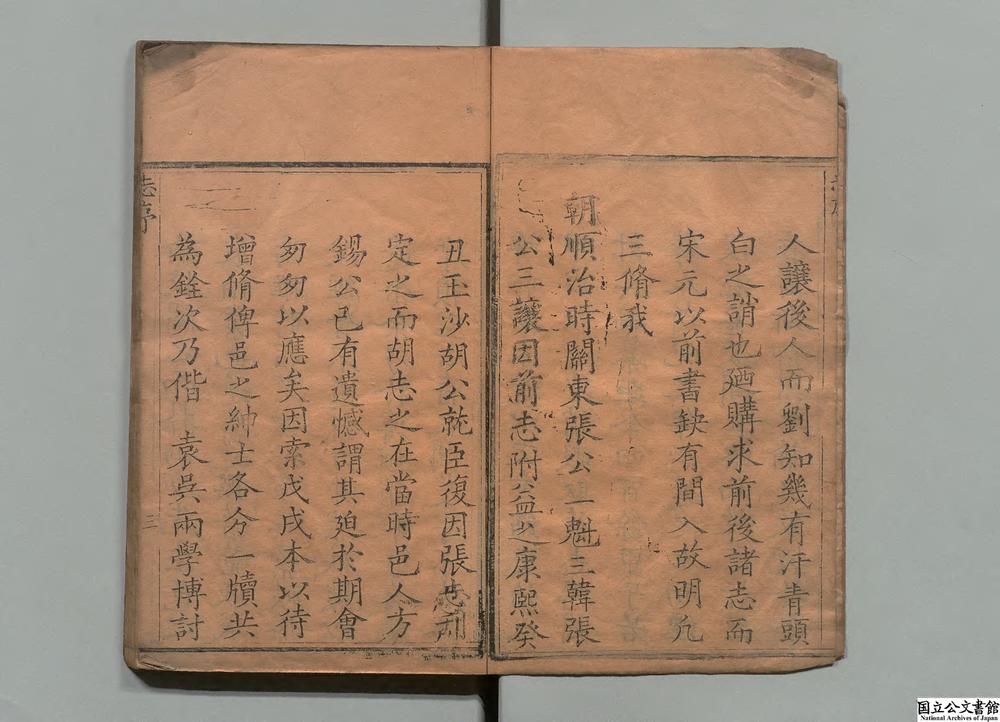 人讓後人而劉知幾有汗青頭
白之誚也廼購求前後諸志而
宋元以前書缺有間入故明凢
三脩我
朝順治時關東張公一魁三韓張
公三讓因前志附益之康熙癸
丑玉沙胡公就臣復因張志刓
定之而胡志之在當時邑人方
錫公已有遺憾謂其廹於期會
匆匆以應矣因索戊戌本以待
增脩俾邑之紳士各分一牘共
為銓次乃偕 袁吳兩學博討
志序
三
国立公文書館
National Archives of Japan